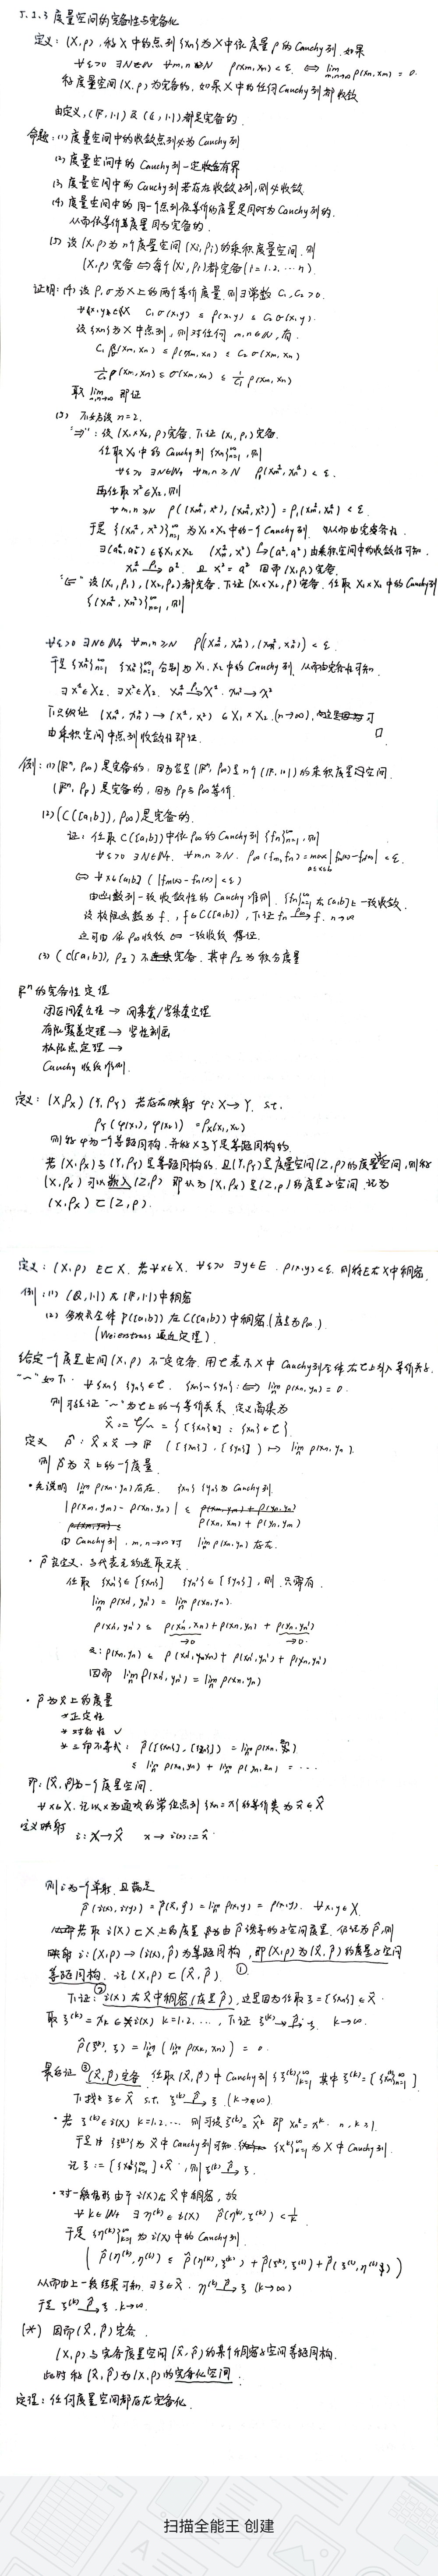 5.2.3 度量空间的完备性与完备化
定义: (X,ρ), 称 X 中的点列 {xn} 为 X 中依度量 ρ 的 Cauchy 列, 如果
∀ε>0 ∃N∈ℕ ∀m,n≥N ρ(xm,xn)<ε. ⟺ lim m,n→∞ ρ(xm,xn) = 0.
称度量空间 (X,ρ) 为完备的, 如果 X 中的任何 Cauchy 列都收敛
由定义, (ℝ,|·|) 及 (ℂ,|·|) 都是完备的.
命题: (1) 度量空间中的收敛点列必为 Cauchy 列
(2) 度量空间中的 Cauchy 列一定有界
(3) 度量空间中的 Cauchy 列若存在收敛子列, 则必收敛
(4) 度量空间中的同一个点列依等价的度量是同时为 Cauchy 列的.
从而依等价度量同为完备的.
(5) 设 (X,ρ) 为 n 个度量空间 (Xi,ρi) 的乘积度量空间. 则
(X,ρ) 完备 ⟺ 每个 (Xi,ρi) 都完备 (i=1,2,…n).
证明: (4) 设 ρ,σ 为 X 上的两个等价度量, 则 ∃ 常数 C1,C2>0.
∀x,y∈X C1σ(x,y) ≤ ρ(x,y) ≤ C2σ(x,y).
设 {xn} 为 X 中点列, 则对任何 m,n∈ℕ, 有
C1σ(xm,xn) ≤ ρ(xm,xn) ≤ C2σ(xm,xn)
1/C2 ρ(xm,xn) ≤ σ(xm,xn) ≤ 1/C1 ρ(xm,xn)
取 lim m,n→∞ 即证
(5) 不妨设 n=2.
"⇒": 设 (X1×X2,ρ) 完备. 下证 (X1,ρ1) 完备.
任取 X1 中的 Cauchy 列 {xn¹}∞n=1, 则
∀ε>0 ∃N∈ℕ+ ∀m,n≥N ρ1(xm¹,xn¹)<ε.
再任取 x²∈X2, 则
∀m,n≥N ρ((xm¹,x²),(xn¹,x²)) = ρ1(xm¹,xn¹)<ε.
于是 {(xn¹,x²)}∞n=1 为 X1×X2 中的一个 Cauchy 列. 从而由完备性.
∃(a¹,a²)∈X1×X2 (xn¹,x²) →ρ (a¹,a²) 由乘积空间中的收敛性可知.
xn¹ →ρ1 a¹. 且 x²=a² 因而 (X1,ρ1) 完备.
"⇐" 设 (X1,ρ1), (X2,ρ2) 都完备. 下证 (X1×X2,ρ) 完备. 任取 X1×X2 中的 Cauchy 列
{(xn¹,xn²)}∞n=1, 则
∀ε>0 ∃N∈ℕ+ ∀m,n≥N ρ((xm¹,xm²),(xn¹,xn²))<ε.
于是 {xn¹}∞n=1 {xn²}∞n=1 分别为 X1,X2 中的 Cauchy 列. 从而由完备性可知
∃x¹∈X1, ∃x²∈X2. xn¹→x¹ xn²→x²
下只须证 (xn¹,xn²)→(x¹,x²)∈X1×X2 (n→∞). 可
由乘积空间中点列收敛性即证. □
例: (1) (ℝⁿ,ρ∞) 是完备的, 因为它是 n 个 (ℝ,|·|) 的乘积度量空间.
(ℝⁿ,ρp) 是完备的, 因为 ρp 与 ρ∞ 等价.
(2) (C([a,b]),ρ∞) 是完备的.
证: 任取 C([a,b]) 中依 ρ∞ 的 Cauchy 列 {fn}∞n=1, 则
∀ε>0 ∃N∈ℕ+ ∀m,n≥N. ρ∞(fm,fn) = max a≤x≤b |fm(x)-fn(x)| < ε.
⟺ ∀x∈[a,b] (|fm(x)-fn(x)|<ε)
由函数列一致收敛性的 Cauchy 准则. {fn}∞n=1 在 [a,b] 上一致收敛.
设极限函数为 f, f∈C([a,b]), 下证 fn →ρ∞ f. n→∞
这可由依 ρ∞ 收敛 ⟺ 一致收敛 得证.
(3) (C([a,b]),ρI) 不完备. 其中 ρI 为积分度量
ℝⁿ 的完备性定理
闭区间套定理 → 闭集套/紧集套定理
有限覆盖定理 → 紧性刻画
极限点定理 →
Cauchy 收敛准则.
定义: (X,ρX) (Y,ρY) 若存在映射 φ:X→Y, s.t.
ρY(φ(x1),φ(x2)) = ρX(x1,x2)
则称 φ 为一个等距同构, 并称 X 与 Y 是等距同构的.
若 (X,ρX) 与 (Y,ρY) 是等距同构的. 且 (Y,ρY) 是度量空间 (Z,ρ) 的度量子空间, 则称
(X,ρX) 可以嵌入 (Z,ρ) 即认为 (X,ρX) 是 (Z,ρ) 的度量子空间, 记为
(X,ρX) ⊏ (Z,ρ).
定义: (X,ρ) E⊂X. 若 ∀x∈X. ∀ε>0 ∃y∈E. ρ(x,y)<ε. 则称 E 在 X 中稠密.
例: (1) (ℚ,|·|) 在 (ℝ,|·|) 中稠密
(2) 多项式全体 P([a,b]) 在 C([a,b]) 中稠密. (度量为 ρ∞.)
(Weierstrass 逼近定理).
给定一个度量空间 (X,ρ) 不一定完备. 用 𝒞 表示 X 中 Cauchy 列全体 在 𝒞 上引入等价关系.
"~" 如下. ∀{xn} {yn}∈𝒞. {xn}~{yn} :⟺ lim ρ(xn,yn) = 0.
则可验证 "~" 为 𝒞 上的一个等价关系. 定义商集为
X̂ := 𝒞/~ = {[{xn}] : {xn}∈𝒞}
定义 ρ̂: X̂×X̂→ℝ ([{xn}],[{yn}]) ↦ lim ρ(xn,yn).
则 ρ̂ 为 X̂ 上的一个度量.
• 先说明 lim ρ(xn,yn) 存在. {xn} {yn} 为 Cauchy 列.
|ρ(xm,ym) - ρ(xn,yn)| ≤
ρ(xn,xm) + ρ(yn,ym)
由 Cauchy 列, m,n→∞ 时 lim ρ(xn,yn) 存在.
• ρ̂ 良定义, 与代表元的选取无关.
任取 {xn'}∈[{xn}] {yn'}∈[{yn}], 则只需有.
lim ρ(xn',yn') = lim ρ(xn,yn).
ρ(xn',yn') ≤ ρ(xn',xn) + ρ(xn,yn) + ρ(yn,yn')
→0 →0.
又: ρ(xn,yn) ≤ ρ(xn',xn) + ρ(xn',yn') + ρ(yn,yn')
因而 lim ρ(xn',yn') = lim ρ(xn,yn)
• ρ̂ 为 X̂ 上的度量
* 正定性
* 对称性 ✓
* 三角不等式: ρ̂([{xn}],[{zn}]) = lim ρ(xn,zn)
≤ lim ρ(xn,yn) + lim ρ(yn,zn) = ⋯
即: (X̂,ρ̂) 为一个度量空间.
∀x∈X. 记以 x 为通项的常值点列 {xn=x} 的等价类为 x̂∈X̂
定义映射
i: X→X̂ x→i(x):=x̂
则 i 为一个单射, 且满足
ρ̂(i(x),i(y)) = ρ̂(x̂,ŷ) = lim ρ(x,y) = ρ(x,y). ∀x,y∈X
若取 i(X)⊏X̂ 上的度量为由 ρ̂ 诱导的子空间度量. 仍记为 ρ̂, 则
映射 i:(X,ρ)→(i(X),ρ̂) 为等距同构, 即 (X,ρ) 为 (X̂,ρ̂) 的度量子空间
等距同构. 记 (X,ρ)⊏(X̂,ρ̂). ①
下证: ② i(X) 在 X̂ 中稠密 (度量 ρ̂). 这是因为任取 ξ=[{xn}]∈X̂.
取 ξ(k)=x̂k∈i(X) k=1,2,…, 下证 ξ(k) →ρ̂ ξ. k→∞.
ρ̂(ξ(k),ξ) = lim k (lim n ρ(xk,xn)) = 0.
最后证 ③ (X̂,ρ̂) 完备. 任取 (X̂,ρ̂) 中 Cauchy 列 {ξ(k)}∞k=1 其中 ξ(k)=[{xn(k)}∞n=1]
下找 ξ∈X̂ s.t. ξ(k) →ρ̂ ξ. (k→∞).
• 若 ξ(k)∈i(X) k=1,2,… 则可设 ξ(k)=x̂k 即 xn(k)=xk. n,k≥1.
于是由 {ξ(k)} 为 X̂ 中 Cauchy 列可知, {xk}∞k=1 为 X 中 Cauchy 列.
记 ξ:=[{xk}∞k=1]∈X̂, 则 ξ(k) →ρ̂ ξ.
• 对一般情形 由于 i(X) 在 X̂ 中稠密, 故
∀k∈ℕ+ ∃η(k)∈i(X) ρ̂(η(k),ξ(k))<1/k
于是 {η(k)}∞k=1 为 i(X) 中的 Cauchy 列.
(ρ̂(η(k),η(l)) ≤ ρ̂(η(k),ξ(k)) + ρ̂(ξ(k),ξ(l)) + ρ̂(ξ(l),η(l)))
从而由上一段结果可知. ∃ξ∈X̂. η(k) →ρ̂ ξ (k→∞)
于是 ξ(k) →ρ̂ ξ. k→∞.
(*) 因而 (X̂,ρ̂) 完备.
(X,ρ) 与完备度量空间 (X̂,ρ̂) 的某个稠密子空间等距同构.
此时称 (X̂,ρ̂) 为 (X,ρ) 的完备化空间.
定理: 任何度量空间都存在完备化.
扫描全能王 创建